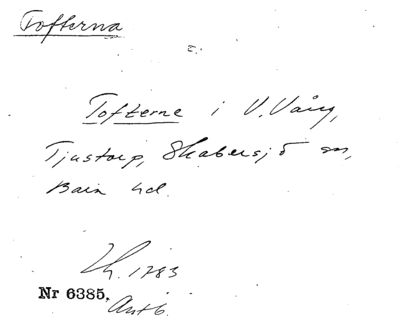 Tofterna
c.
Tofterne i V. Vång,
Tjustorp, Skabersjö sn,
Bara hd.
Lh. 1783
Nr 6385.
Antb.